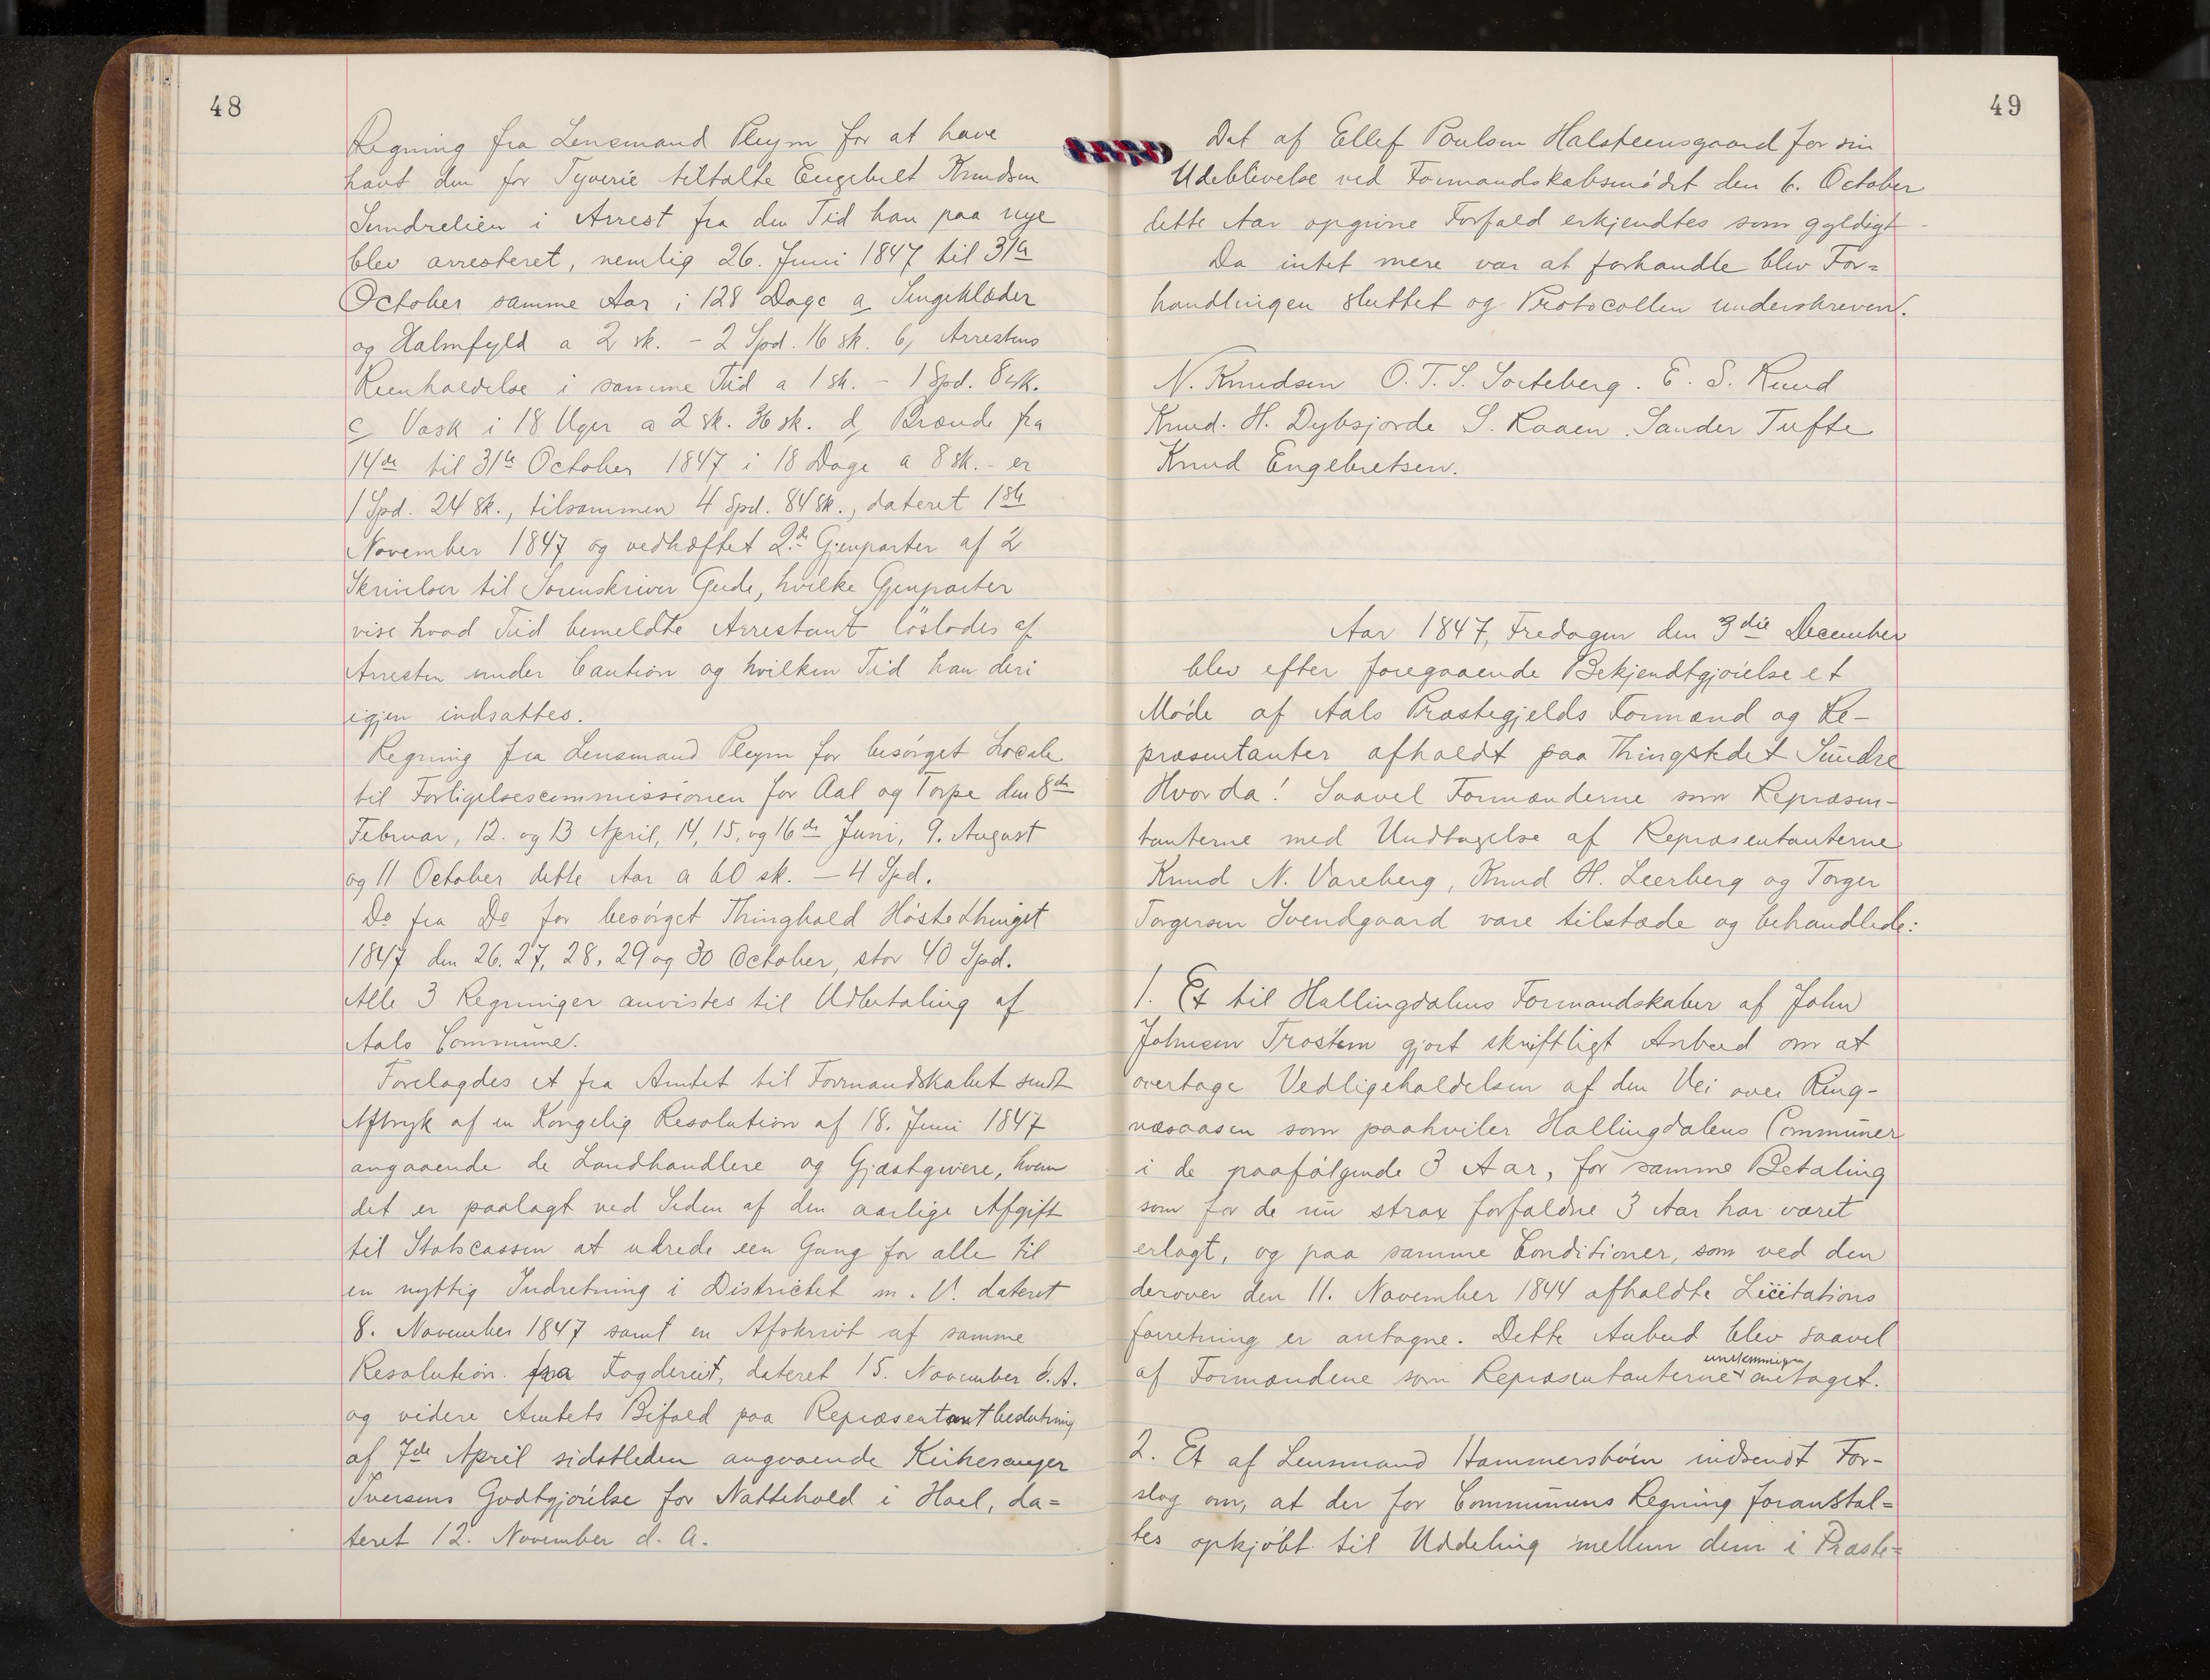 48
Regning fra Lensmand Pleym for at have
havt den for Tyverie tiltalte Engebret Knudsen
Sundrelien i Arrest fra den Tid han paa nye
blev arresteret, nemlig 26. Juni 1847 til 31te
October samme Aar i 128 Dage a Sengeklæder
og Halmfyld a 2 sk. - 2 Spd. 16 sk. b, Arrestens
Reenholdelse i samme Tid a 1 sk. - 1 Spd. 8 sk.
c Vask i 18 Uger a 2 sk. 36 sk. d, Brænde fra
14de til 31te October 1847 i 18 Dage a 8 sk. - er
1 Spd. 24 sk., tilsammen 4 Spd. 84 sk., dateret 1ste
November 1847 og vedhæftet 2de Gjenparter af 2
Skrivelser til Sorenskriver Gude, hvilke Gjenparter
vise hvad Tiid bemeldte Arrestant löslodes af
Arresten under Caution og hvilken Tid han deri
igjen indsattes.
Regning fra Lensmand Pleym for besörget Locale
til Forligelsescommissionen for Aal og Torpe den 8de
Februar, 12. og 13 April, 14, 15, og 16de Juni, 9. August
og 11 October dette Aar a 60 sk. - 4 Spd.
Do fra Do for besörget Thinghold Höstethinget
1847 den 26. 27, 28, 29 og 30 October, stor 40 Spd.
Alle 3 Regninger anvistes til Udbetaling af
Aals Commune.
Forelagdes et fra Amtet til Formandskabet sendt
Aftryk af en Kongelig Resolution af 18. Juni 1847
angaaende de Landhandlere og Gjæstgivere, hvem
det er paalagt ved Siden af den aarlige Afgift
til Statscassen at udrede een Gang for alle til
en nyttig Indretning i Districtet m. V. dateret
8. November 1847 samt en Afskrivt af samme
Resolution fra Fogderiet, dateret 15. November d. A.
og videre Amtets Bifald paa Repræsentantbeslutning
af 7de April sidstleden angaaende Kirkesanger
Iversens Godtgjörelse for Nattehold i Hoel, da=
teret 12. November d. A.
49
Det af Ellef Poulsen Halsteensgaard for sin
Udeblivelse ved Formandskabsmödet den 6. October
dette Aar opgivne Forfald erkjendtes som gyldigt.
Da intet mere var at forhandle blev For=
handlingen sluttet og Protocollen underskreven.
N. Knudsen O. T. S. Sorteberg. E. S. Ruud
Knud. H. Dybsjorde S. Raaen. Sander Tufte
Knud Engebretsen.
Aar 1847, Fredagen den 3die December
blev efter foregaaende Bekjendtgjörelse et
Möde af Aals Præstegjelds Formænd og Re-
præsentanter afholdt paa Thingstedet Sundre
Hvorda! Saavel Formænderne som Repræsen-
tanterne med Undtagelse af Repræsentanterne
Knud N. Vareberg, Knud H. Leerberg og Torger
Torgersen Svendgaard vare tilstæde og behandlede:
1. Et til Hallingdalens Formandskaber af John
Johnsen Trostem gjort skriftligt Anbud om at
overtage Vedligeholdelsen af den Vei over Ring-
næsaasen som paahviler Hallingdalens Communer
i de paafölgende 3 Aar, for samme Betaling
som for de nu strax forfaldne 3 Aar har været
erlagt, og paa samme Conditioner, som ved den
derover den 11. November 1844 afholdte Licitations
forretning er antagne. Dette Anbud blev saavel
af Formændene som Repræsentanterne eenstemmigen antaget.
2. Et af Lensmand Hammersböen indsendt For-
slag om, at der for Communens Regning foranstal=
tes opkjöbt til Uddeling mellem dem i Præste=